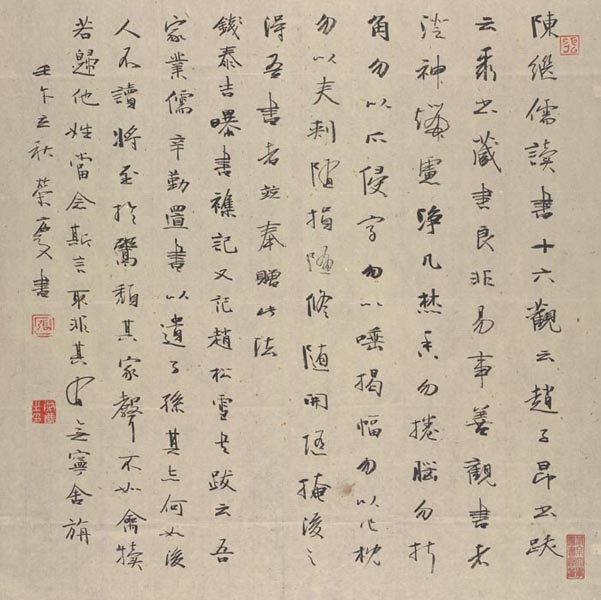 陳繼儒讀書十六觀云趙子昂书跋
云聚书藏書良非易事善觀書者
澄神端慮淨几焚香勿捲腦勿折
角勿以爪侵字勿以唾揭幅勿以作枕
勿以夾刺隨損隨修隨開隨掩後之
得吾書者並奉贈此法
錢泰吉曝書襍記又記趙松雪书跋云吾
家業儒辛勤置書以遺子孫其志何如後
人不讀將至於鬻頹其家聲不如禽犢
若歸他姓當念斯言取非其有毋寧舍旃
壬午立秋榮慶書